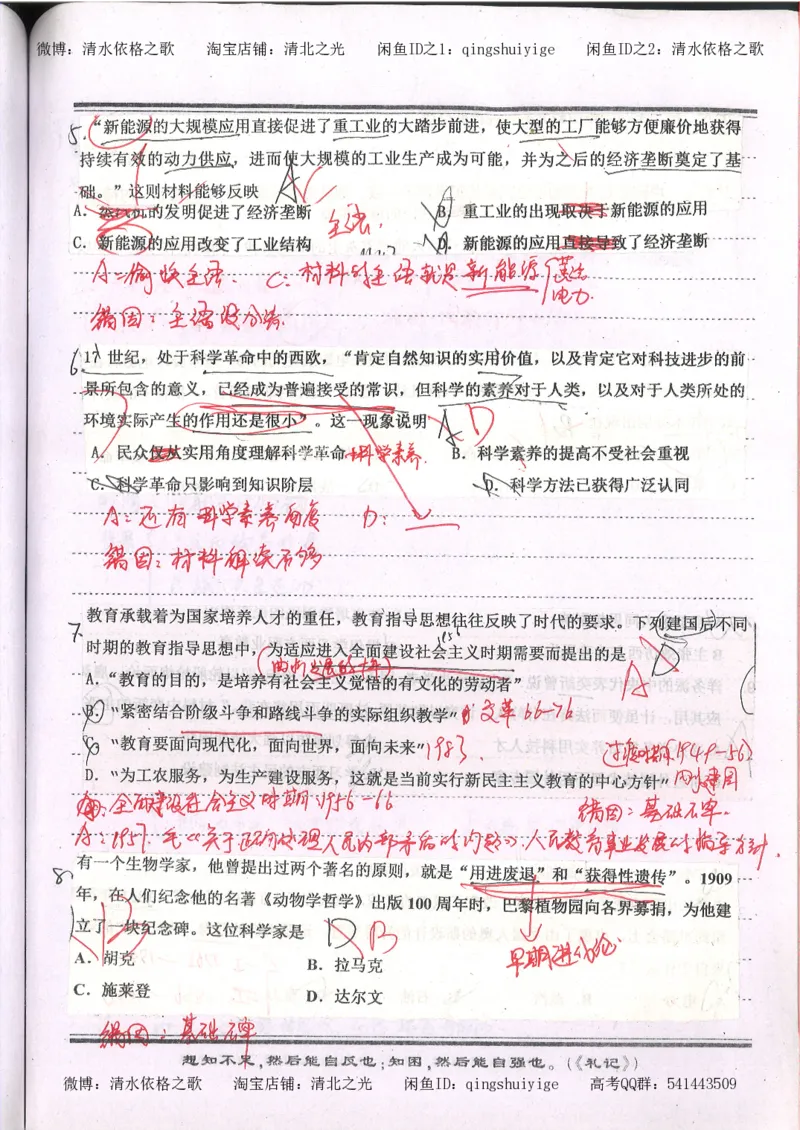 微博：清水依格之歌 淘宝店铺：清北之光 闲鱼ID之1：qingshuiyige 闲鱼ID之2：清水依格之歌
5. “新能源的大规模应用直接促进了重工业的大踏步前进，使大型的工厂能够方便廉价地获得
持续有效的动力供应，进而使大规模的工业生产成为可能，并为之后的经济垄断奠定了基
础。”这则材料能够反映 A
A. 蒸汽机的发明促进了经济垄断 主语. B. 重工业的出现取决于新能源的应用
C. 新能源的应用改变了工业结构 D. 新能源的应用直接导致了经济垄断
A：偷换主语 C：材料的主语就是新能源
电力.
错因：主语没分清.
6. 17 世纪，处于科学革命中的西欧，“肯定自然知识的实用价值，以及肯定它对科技进步的前
景所包含的意义，已经成为普遍接受的常识，但科学的素养对于人类，以及对于人类所处的
环境实际产生的作用还是很小”。这一现象说明 A D
A. 民众仅从实用角度理解科学革命 科学素养. B. 科学素养的提高不受社会重视
C. 科学革命只影响到知识阶层 D. 科学方法已获得广泛认同
A：还有科学素养角度 D：
错因：材料解读不够
7. 教育承载着为国家培养人才的重任，教育指导思想往往反映了时代的要求。下列建国后不同
时期的教育指导思想中，为适应进入全面建设社会主义时期需要而提出的是
A. “教育的目的，是培养有社会主义觉悟的有文化的劳动者” A
B. “紧密结合阶级斗争和路线斗争的实际组织教学” 文革 66-76
C. “教育要面向现代化，面向世界，面向未来” 1983. 过渡时期(1949-56)
D. “为工农服务，为生产建设服务，这就是当前实行新民主主义教育的中心方针” 刚建国
全面建设社会主义时期：1956-66 错因：基础不牢.
A：1957. 毛《关于正确处理人民内部矛盾的问题》：人民教育事业发展的指导方针.
8. 有一个生物学家，他曾提出过两个著名的原则，就是“用进废退”和“获得性遗传”。1909
年，在人们纪念他的名著《动物学哲学》出版 100 周年时，巴黎植物园向各界募捐，为他建
立了一块纪念碑。这位科学家是 D B
早期进化论
A. 胡克 B. 拉马克
C. 施莱登 D. 达尔文
错因：基础不牢
知不足，然后能自反也；知困，然后能自强也。（《礼记》）
微博：清水依格之歌 淘宝店铺：清北之光 闲鱼ID：qingshuiyige 高考QQ群：541443509